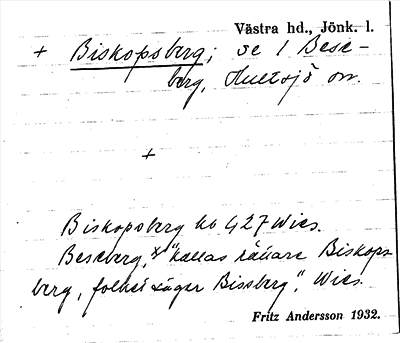 Västra hd., Jönk. l.
+ Biskopsberg; se 1 Bese-
berg, Hultsjö sn.
+
Biskopsberg hb 427 Wies.
Beseberg, "kallas rättare Biskops
berg, folket säger Bissberg", Wies.
Fritz Andersson 1932.